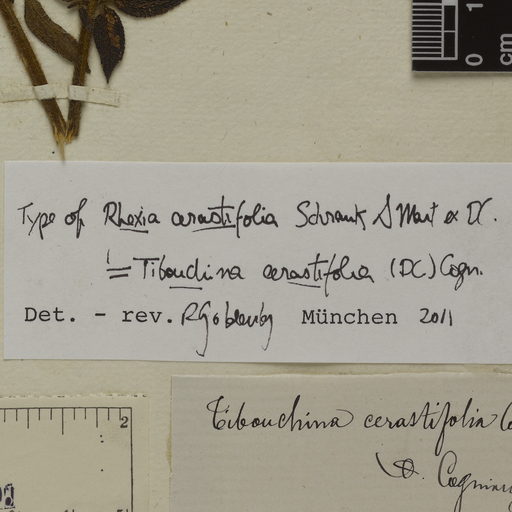 0 1 cm
Type of Rhexia cerastifolia Schrank & Mart ex DC.
= Tibouchina cerastifolia (DC) Cogn.
Det. - rev. RGoldenberg München 2011
Tibouchina cerastifolia
Cogniaux
2